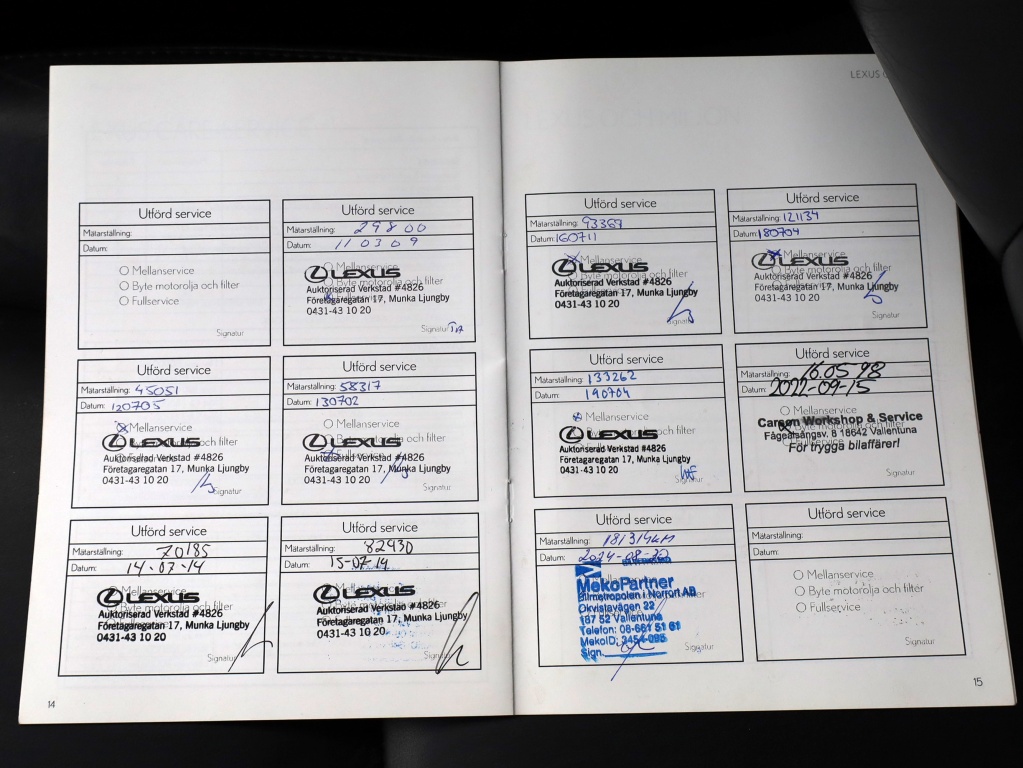 LEXUS
Utförd service
Mätarställning:
Datum:
Mellanservice
Byte motorolja och filter
Fullservice
Signatur
Utförd service
Mätarställning: 29800
Datum: 110309
Mellanservice
LEXUS
Byte motorolja och filter
Auktoriserad Verkstad #4826
Fullservice
Företagaregatan 17, Munka Ljungby
0431-43 10 20
Signatur
Utförd service
Mätarställning: 45051
Datum: 120705
Mellanservice
LEXUS
Byte motorolja och filter
Auktoriserad Verkstad #4826
Företagaregatan 17, Munka Ljungby
0431-43 10 20
Signatur
Utförd service
Mätarställning: 58317
Datum: 130702
Mellanservice
LEXUS
Byte motorolja och filter
Auktoriserad Verkstad #4826
Fullservice
Företagaregatan 17, Munka Ljungby
0431-43 10 20
Signatur
Utförd service
Mätarställning: 70185
Datum: 14-07-14
Mellanservice
LEXUS
Byte motorolja och filter
Auktoriserad Verkstad #4826
Företagaregatan 17, Munka Ljungby
0431-43 10 20
Signatur
Utförd service
Mätarställning: 82930
Datum: 15-07-14
Mellanservice
LEXUS
Byte motorolja och filter
Auktoriserad Verkstad #4826
Företagaregatan 17, Munka Ljungby
0431-43 10 20
Signatur
14
Utförd service
Mätarställning: 93369
Datum: 160711
Mellanservice
LEXUS
Byte motorolja och filter
Auktoriserad Verkstad #4826
Företagaregatan 17, Munka Ljungby
0431-43 10 20
Signatur
Utförd service
Mätarställning: 121134
Datum: 180704
Mellanservice
LEXUS
Byte motorolja och filter
Auktoriserad Verkstad #4826
Företagaregatan 17, Munka Ljungby
0431-43 10 20
Signatur
Utförd service
Mätarställning: 133262
Datum: 190704
Mellanservice
LEXUS
Byte motorolja och filter
Auktoriserad Verkstad #4826
Företagaregatan 17, Munka Ljungby
0431-43 10 20
Signatur
Utförd service
Mätarställning: 16.05 98
Datum: 2022-09-15
Mellanservice
Workshop & Service
Byte motorolja och filter
8 18642 Vallentuna
För trygga bilaffärer!
Signatur
Utförd service
Mätarställning: 181314KM
Datum:
Mellanservice
MekoPartner
Bilmetropolen i Norrort AB
Okvistavägen 22
187 52 Vallentuna
Telefon: 08-661 51 61
MekoID: 3454-095
Sign.
Signatur
Utförd service
Mätarställning:
Datum:
Mellanservice
Byte motorolja och filter
Fullservice
Signatur
15